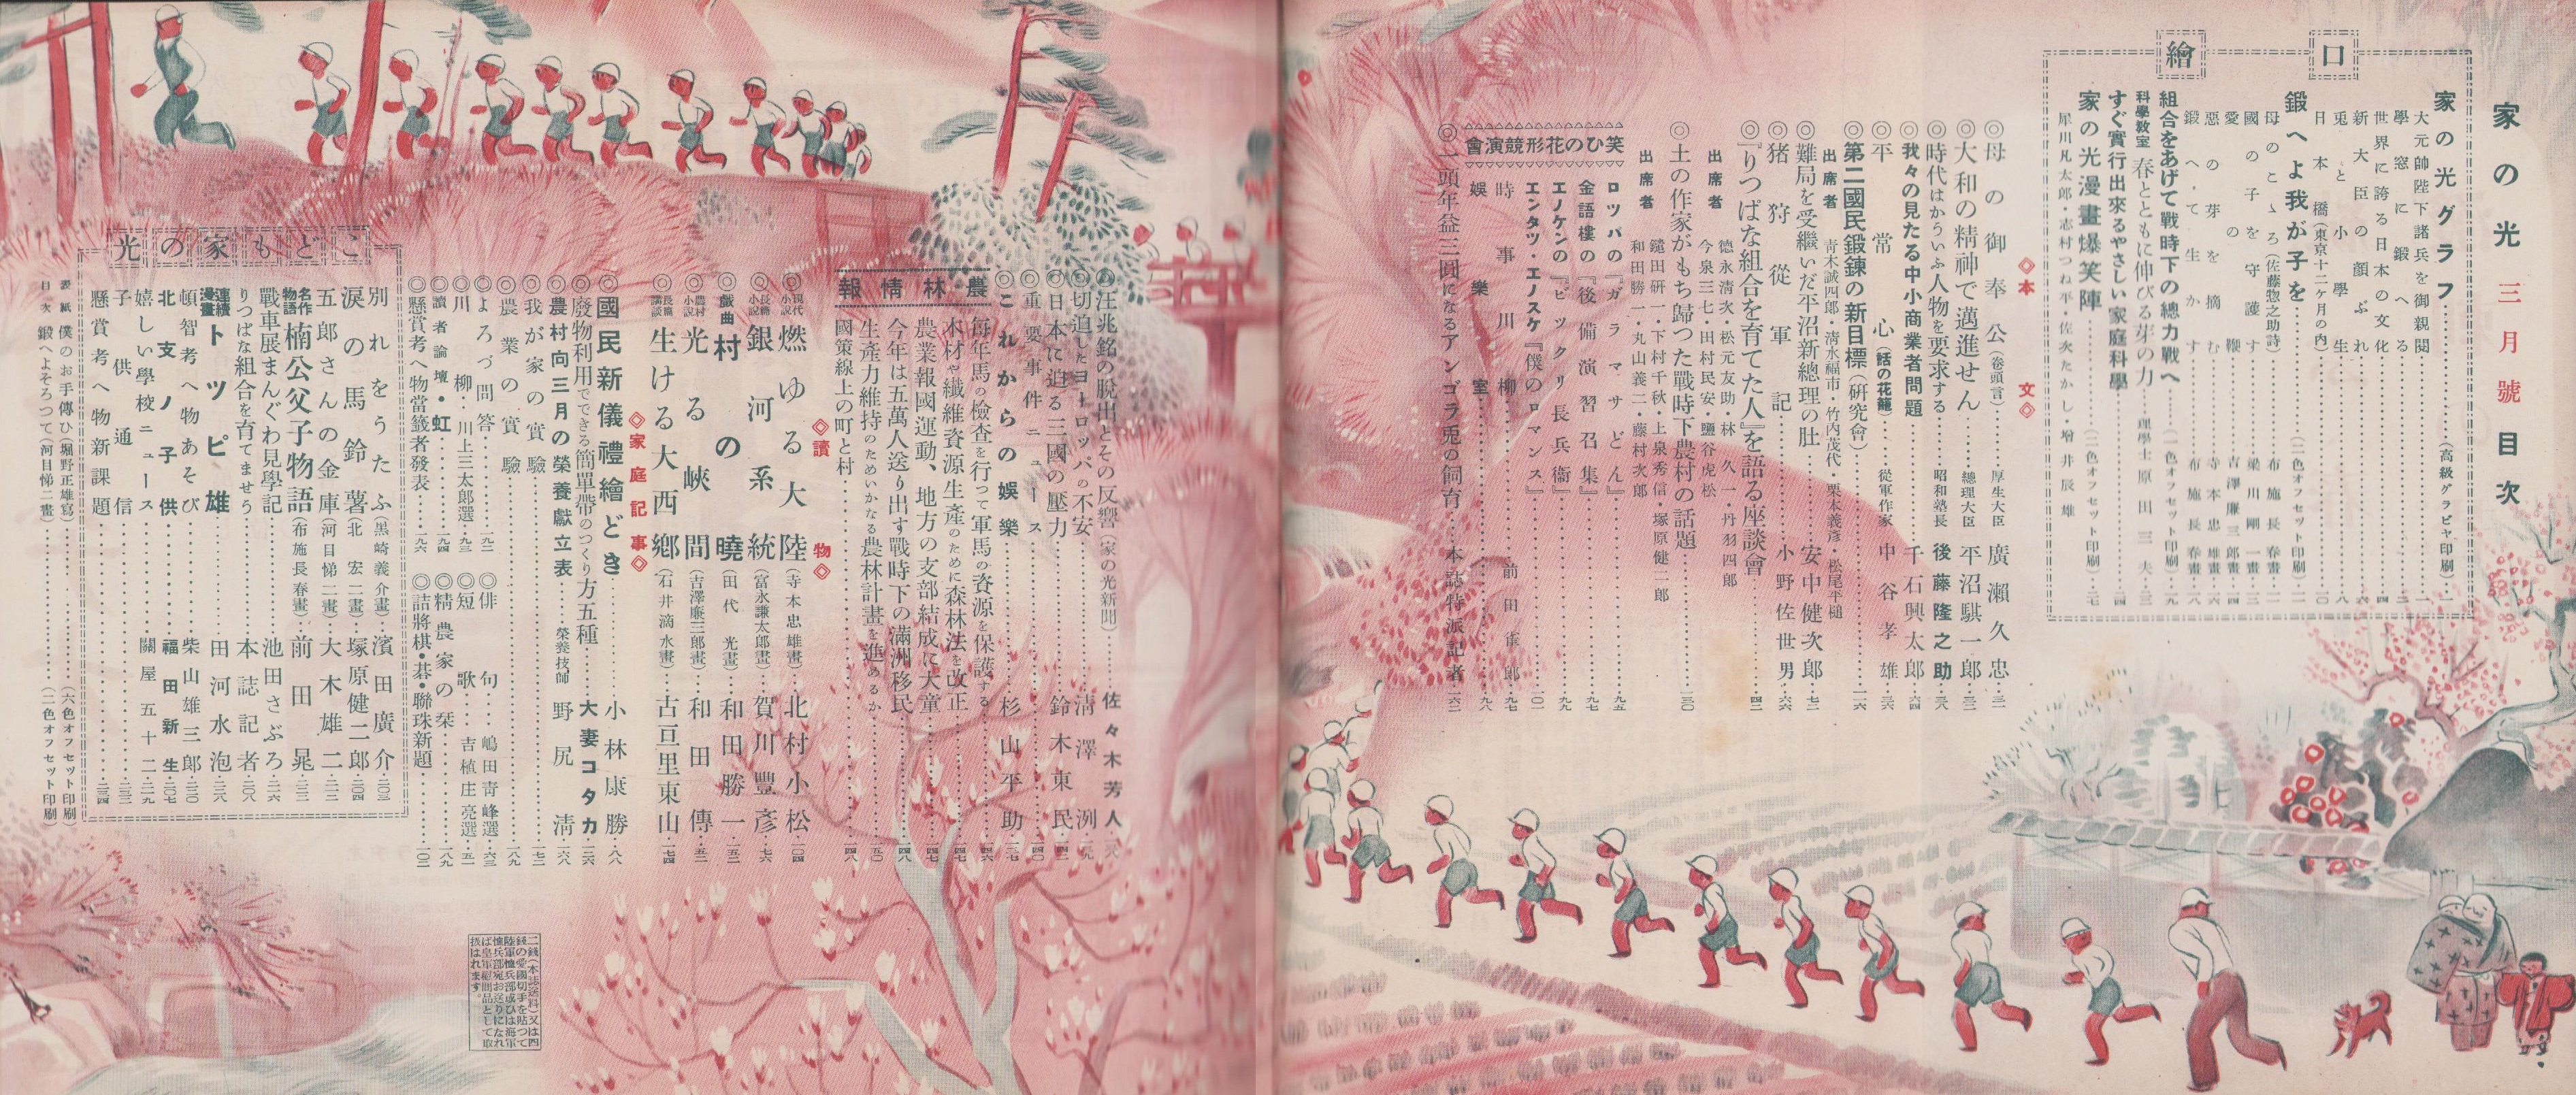 家の光 三月號 目次
口繪
家の光グラフ……(高級グラビヤ印刷)…一
大元帥陛下諸兵を御親閱…一
學窓に鍛へる…二
世界に誇る日本の文化…四
新大臣の顔ぶれ…六
兎と小學生…八
日本橋(東京十二ケ月の內)…一〇
鍛へよ我が子を……(二色オフセット印刷)…一一
母のこゝろ(佐藤惣之助詩)…布施長春畫…一一
國の子を守護す…梁川剛一畫…一三
愛の鞭…吉澤廉三郎畫…一四
惡の芽を摘む…寺本忠雄畫…一六
鍛へて生かす…布施長春畫…一八
組合をあげて戰時下の總力戰へ……(一色オフセット印刷)…一九
科學敎室 春とともに伸びる芽の力…理學士 原田三夫…二三
すぐ實行出來るやさしい家庭科學…二四
家の光漫畫爆笑陣……(二色オフセット印刷)…二七
犀川凡太郎・志村つね平・佐次たかし・增井辰雄
◇本文◇
◎母の御奉公(卷頭言)…厚生大臣 廣瀨久忠…三一
◎大和の精神で邁進せん…總理大臣 平沼騏一郎…三二
◎時代はかういふ人物を要求する…昭和塾長 後藤隆之助…三八
◎我々の見たる中小商業者問題…千石興太郎…六四
◎平常心(話の花籠)…從軍作家 中谷孝雄…三六
第二國民鍛鍊の新目標(硏究會)…一二六
出席者 靑木誠四郎・淸水福市・竹內茂代・栗本義彥・松尾平槌
◎難局を受繼いだ平沼新總理の肚…安中健次郎…七二
◎猪狩從軍記…小野佐世男…六六
◎『りつぱな組合を育てた人』を語る座談會…四二
出席者 德永淸次・松元友助・林久一・丹羽四郎
今泉三七・田村民安・鹽谷虎松
◎土の作家がもち歸つた戰時下農村の話題…一三〇
出席者 鑓田硏一・下村千秋・上泉秀信・塚原健二郎
和田勝一・丸山義二・藤村次郎
笑ひの花形競演會
ロツパの『ガラマサどん』…九五
金語樓の『後備演習召集』…九七
エノケンの『ビツクリ長兵衞』…九九
エンタツ・エノスケ『僕のロマンス』…一〇一
時事川柳…前田雀郎…九七
娛樂室…九八
◎一頭年益三圓になるアンゴラ兎の飼育…本誌特派記者…一六二
◎汪兆銘の脫出とその反響(家の光新聞)…佐々木芳人
◎切迫したヨーロツパの不安…淸澤洌
◎日本に迫る三國の壓力…鈴木東民…一四二
◎重要事件ニュース…一四〇
◎これからの娛樂…杉山平助…一三七
農林情報
每年馬の檢査を行つて軍馬の資源を保護する…一四六
木材や纖維資源生產のために森林法を改正…一四七
農業報國運動、地方の支部結成に大童…一四七
今年は五萬人送り出す戰時下の滿洲移民…一四八
生產力維持のためいかなる農林計畫を進めるか…一五〇
國策線上の町と村…一四八
◇讀物◇
◎現代小說 燃ゆる大陸(寺本忠雄畫)…北村小松…一〇四
◎長篇小說 銀河系統(富永謙太郎畫)…賀川豐彥…七六
戲曲 村の曉(田代光畫)…和田勝一…一五二
◎農村小說 光る峽間(吉澤廉三郎畫)…和田傳…五二
長篇講談 生ける大西鄕(石井滴水畫)…古亘里東山…一七四
◇家庭記事◇
◎國民新儀禮繪どき…小林康勝…八八
◎廢物利用でできる簡單帶のつくり方五種…大妻コタカ…一三六
◎農村向三月の榮養獻立表…榮養技師 野尻淸…一六八
◎我が家の實驗…一七二
◎農業の實驗…一八九
◎よろづ問答…一九二
◎川柳・川上三太郎選…一九三
◎讀者論壇・虹…一九四
◎懸賞考へ物當籤者發表…一九六
◎俳句…嶋田靑峰選…六三
◎短歌…吉植庄亮選…五一
◎精農家の栞…一八九
◎詰將棋・碁・聯珠新題…一〇三
こども家の光
別れをうたふ(黑崎義介畫)…濱田廣介…二〇三
淚の馬鈴薯(北宏二畫)…塚原健二郎…二〇四
五郎さんの金庫(河目悌二畫)…大木雄二…二一二
名作物語 楠公父子物語(布施長春畫)…前田晁…二二二
戰車展まんぐわ見學記…池田さぶろ…二一六
りつぱな組合を育てませう…本誌記者…二〇八
連續漫畫 トツピ雄…田河水泡…二二八
頓智考へ物あそび…柴山雄三郎…二二〇
北支ノ子供…福田新生…二〇七
嬉しい學校ニュース…關屋五十二…二一九
子供通信…二三二
懸賞考へ物新課題…二三四
表紙 僕のお手傳ひ(堀野正雄寫)……(六色オフセット印刷)
目次 鍛へよそろつて(河目悌二畫)……(二色オフセット印刷)
二錢(本誌送料)又は四
錢の愛國切手を貼つて
陸軍恤兵部或ひは海軍
恤兵部宛お送りになれ
ば皇軍慰問品として取
扱はれます。